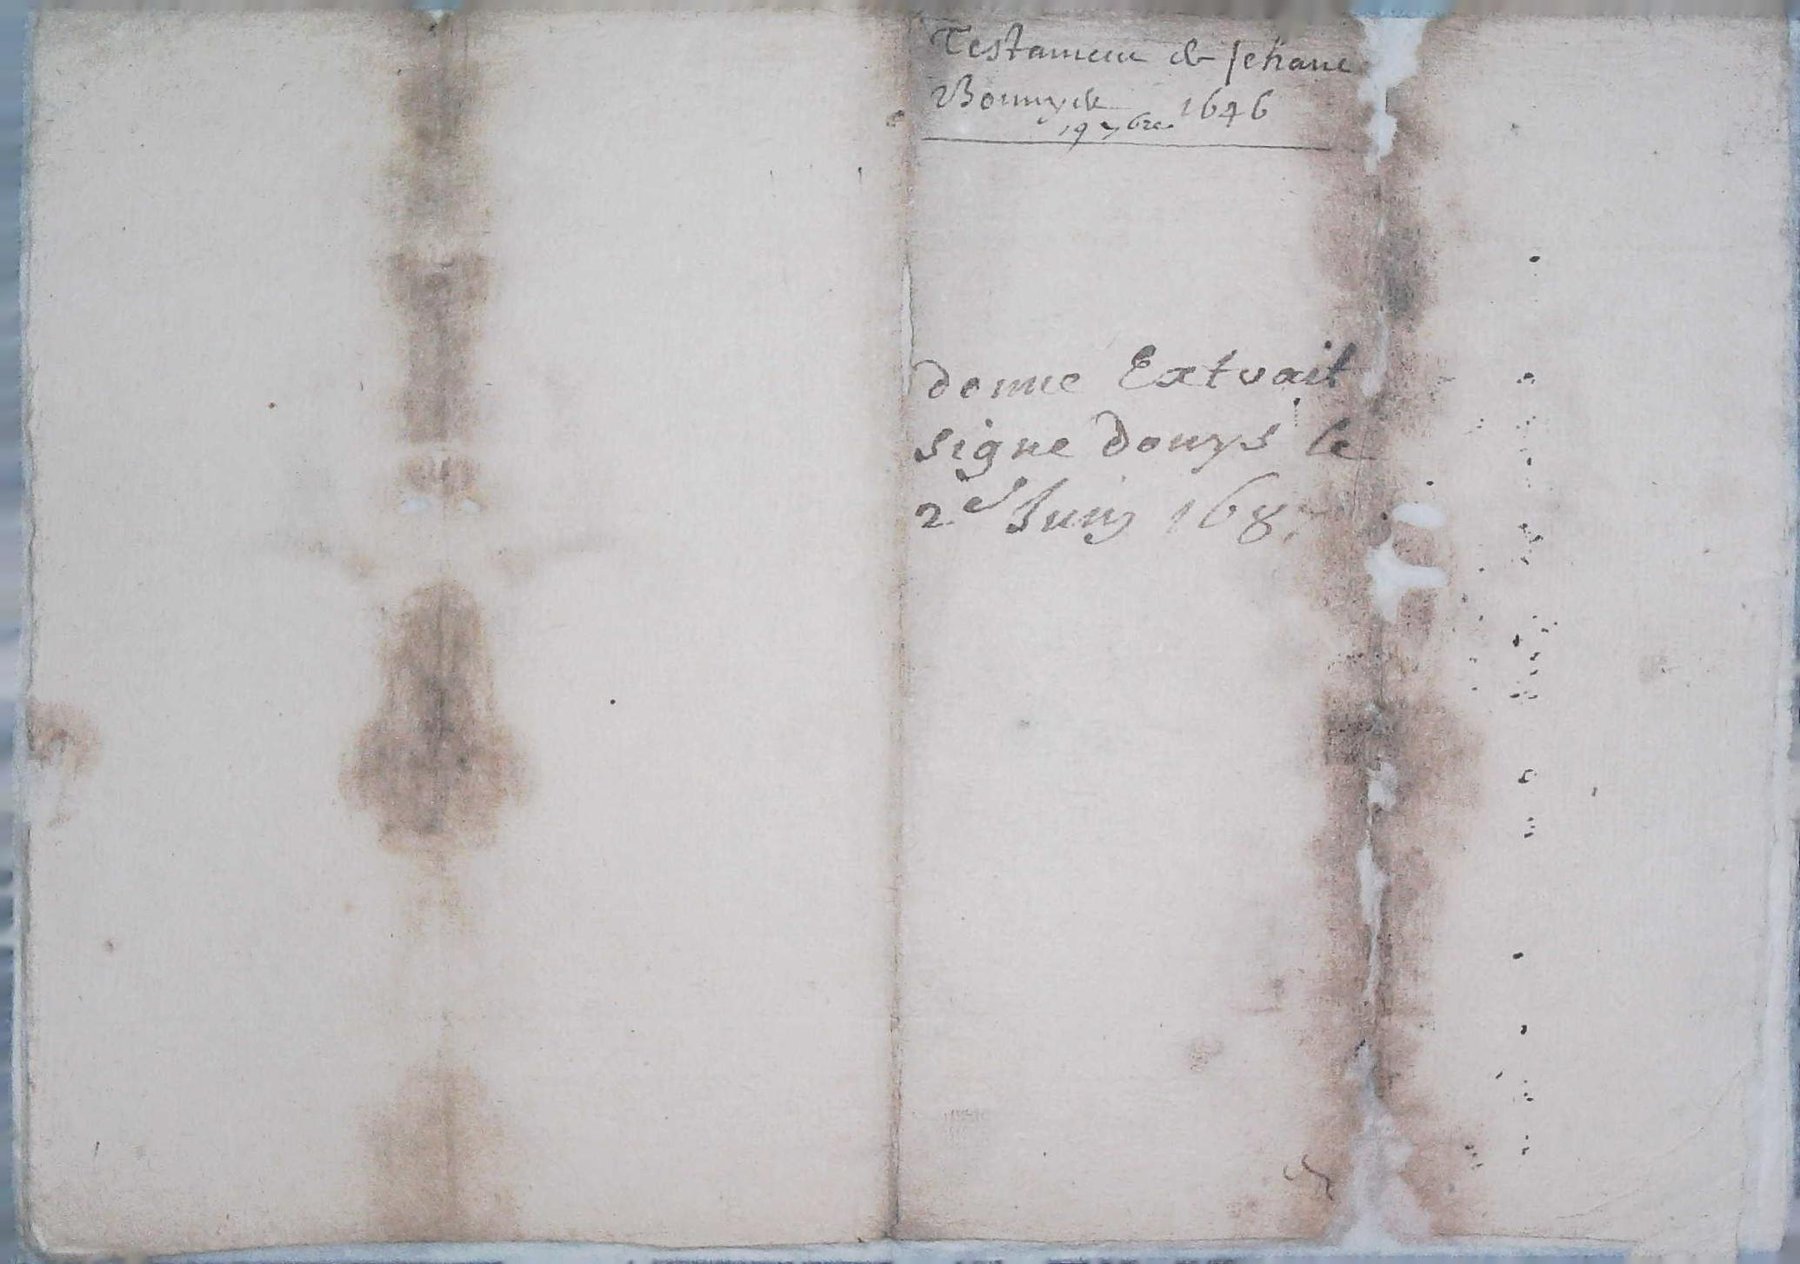 Testament de Jehane
Bonnyck 1646
19 7bre
donne Extrait
signe Douys le
2e Juing 1687